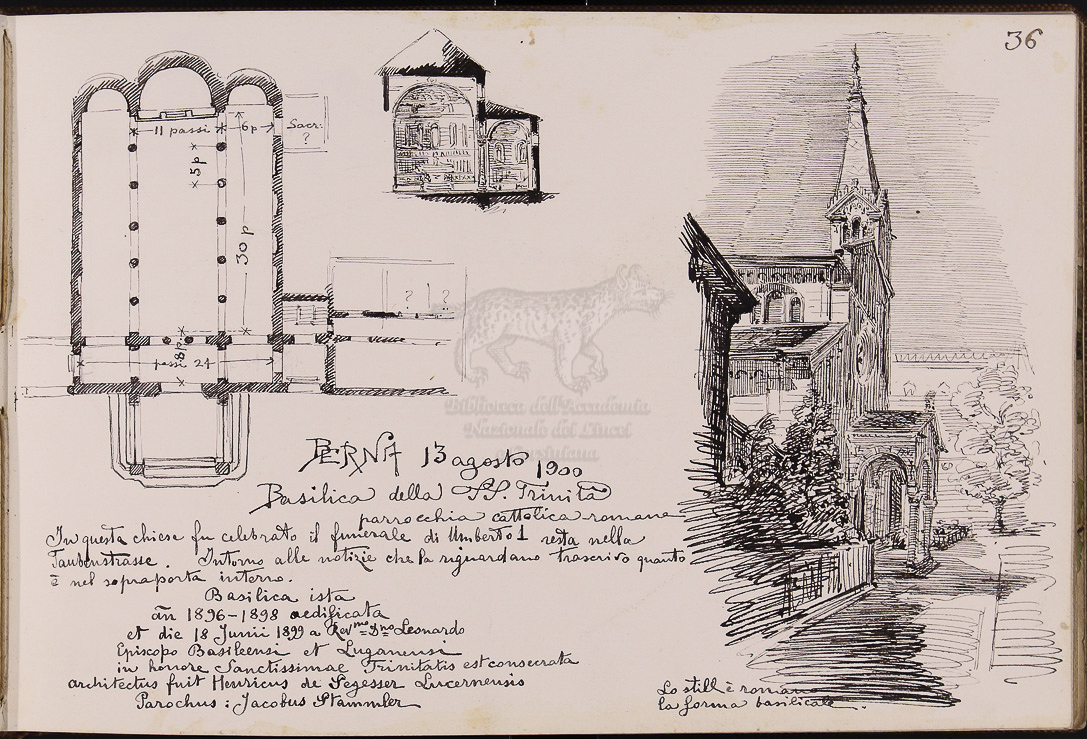 36
11 passi
6p
Sacr:
?
5p
30 p
? ?
8p.
passi 24
BERNA 13 agosto 1900
Basilica della SS. Trinità
parrocchia cattolica romana
In questa chiese fu celebrato il funerale di Umberto I resta nella
Taubenstrasse. Intorno alle notizie che la riguardano trascrivo quanto
è nel sopraporta interno.
Basilica ista
an̄ 1896-1898 aedificata
et die 18 Junii 1899 a Revmo Dno Leonardo
Episcopo Basileensi et Luganensi
in honore Sanctissimae Trinitatis est consecrata
architectus fuit Henricus de Segesser Lucernensis
Parochus: Jacobus Stammler
Lo still è romano
la forma basilicale.
Biblioteca dell'Accademia
Nazionale dei Lincei
e Corsiniana